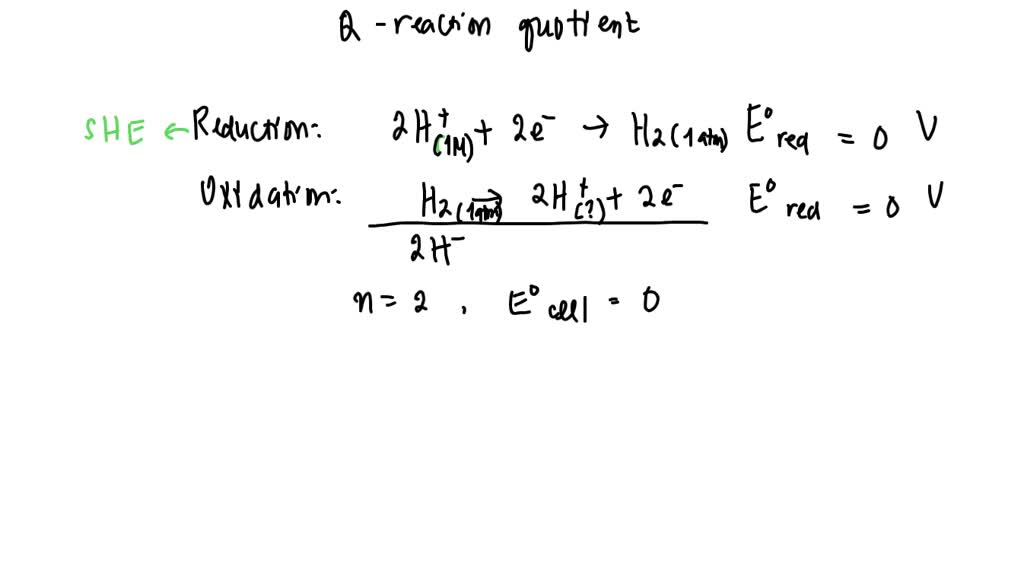 Q - reaction quotient
SHE ← Reduction: 2H⁺(1M) + 2e⁻ → H₂(1atm) E⁰red = 0 V
Oxidation: H₂(1atm) → 2H⁺(?) + 2e⁻ E⁰red = 0 V
2H⁻
n = 2 , E⁰cell = 0